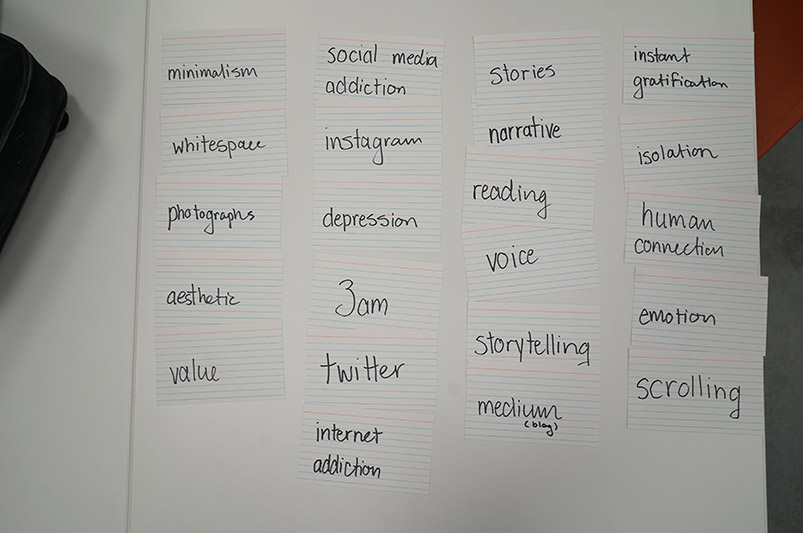 minimalism
whitespace
photographs
aesthetic
value
social media
addiction
instagram
depression
3am
twitter
internet
addiction
stories
narrative
reading
voice
storytelling
medium
(blog)
instant
gratification
isolation
human
connection
emotion
scrolling